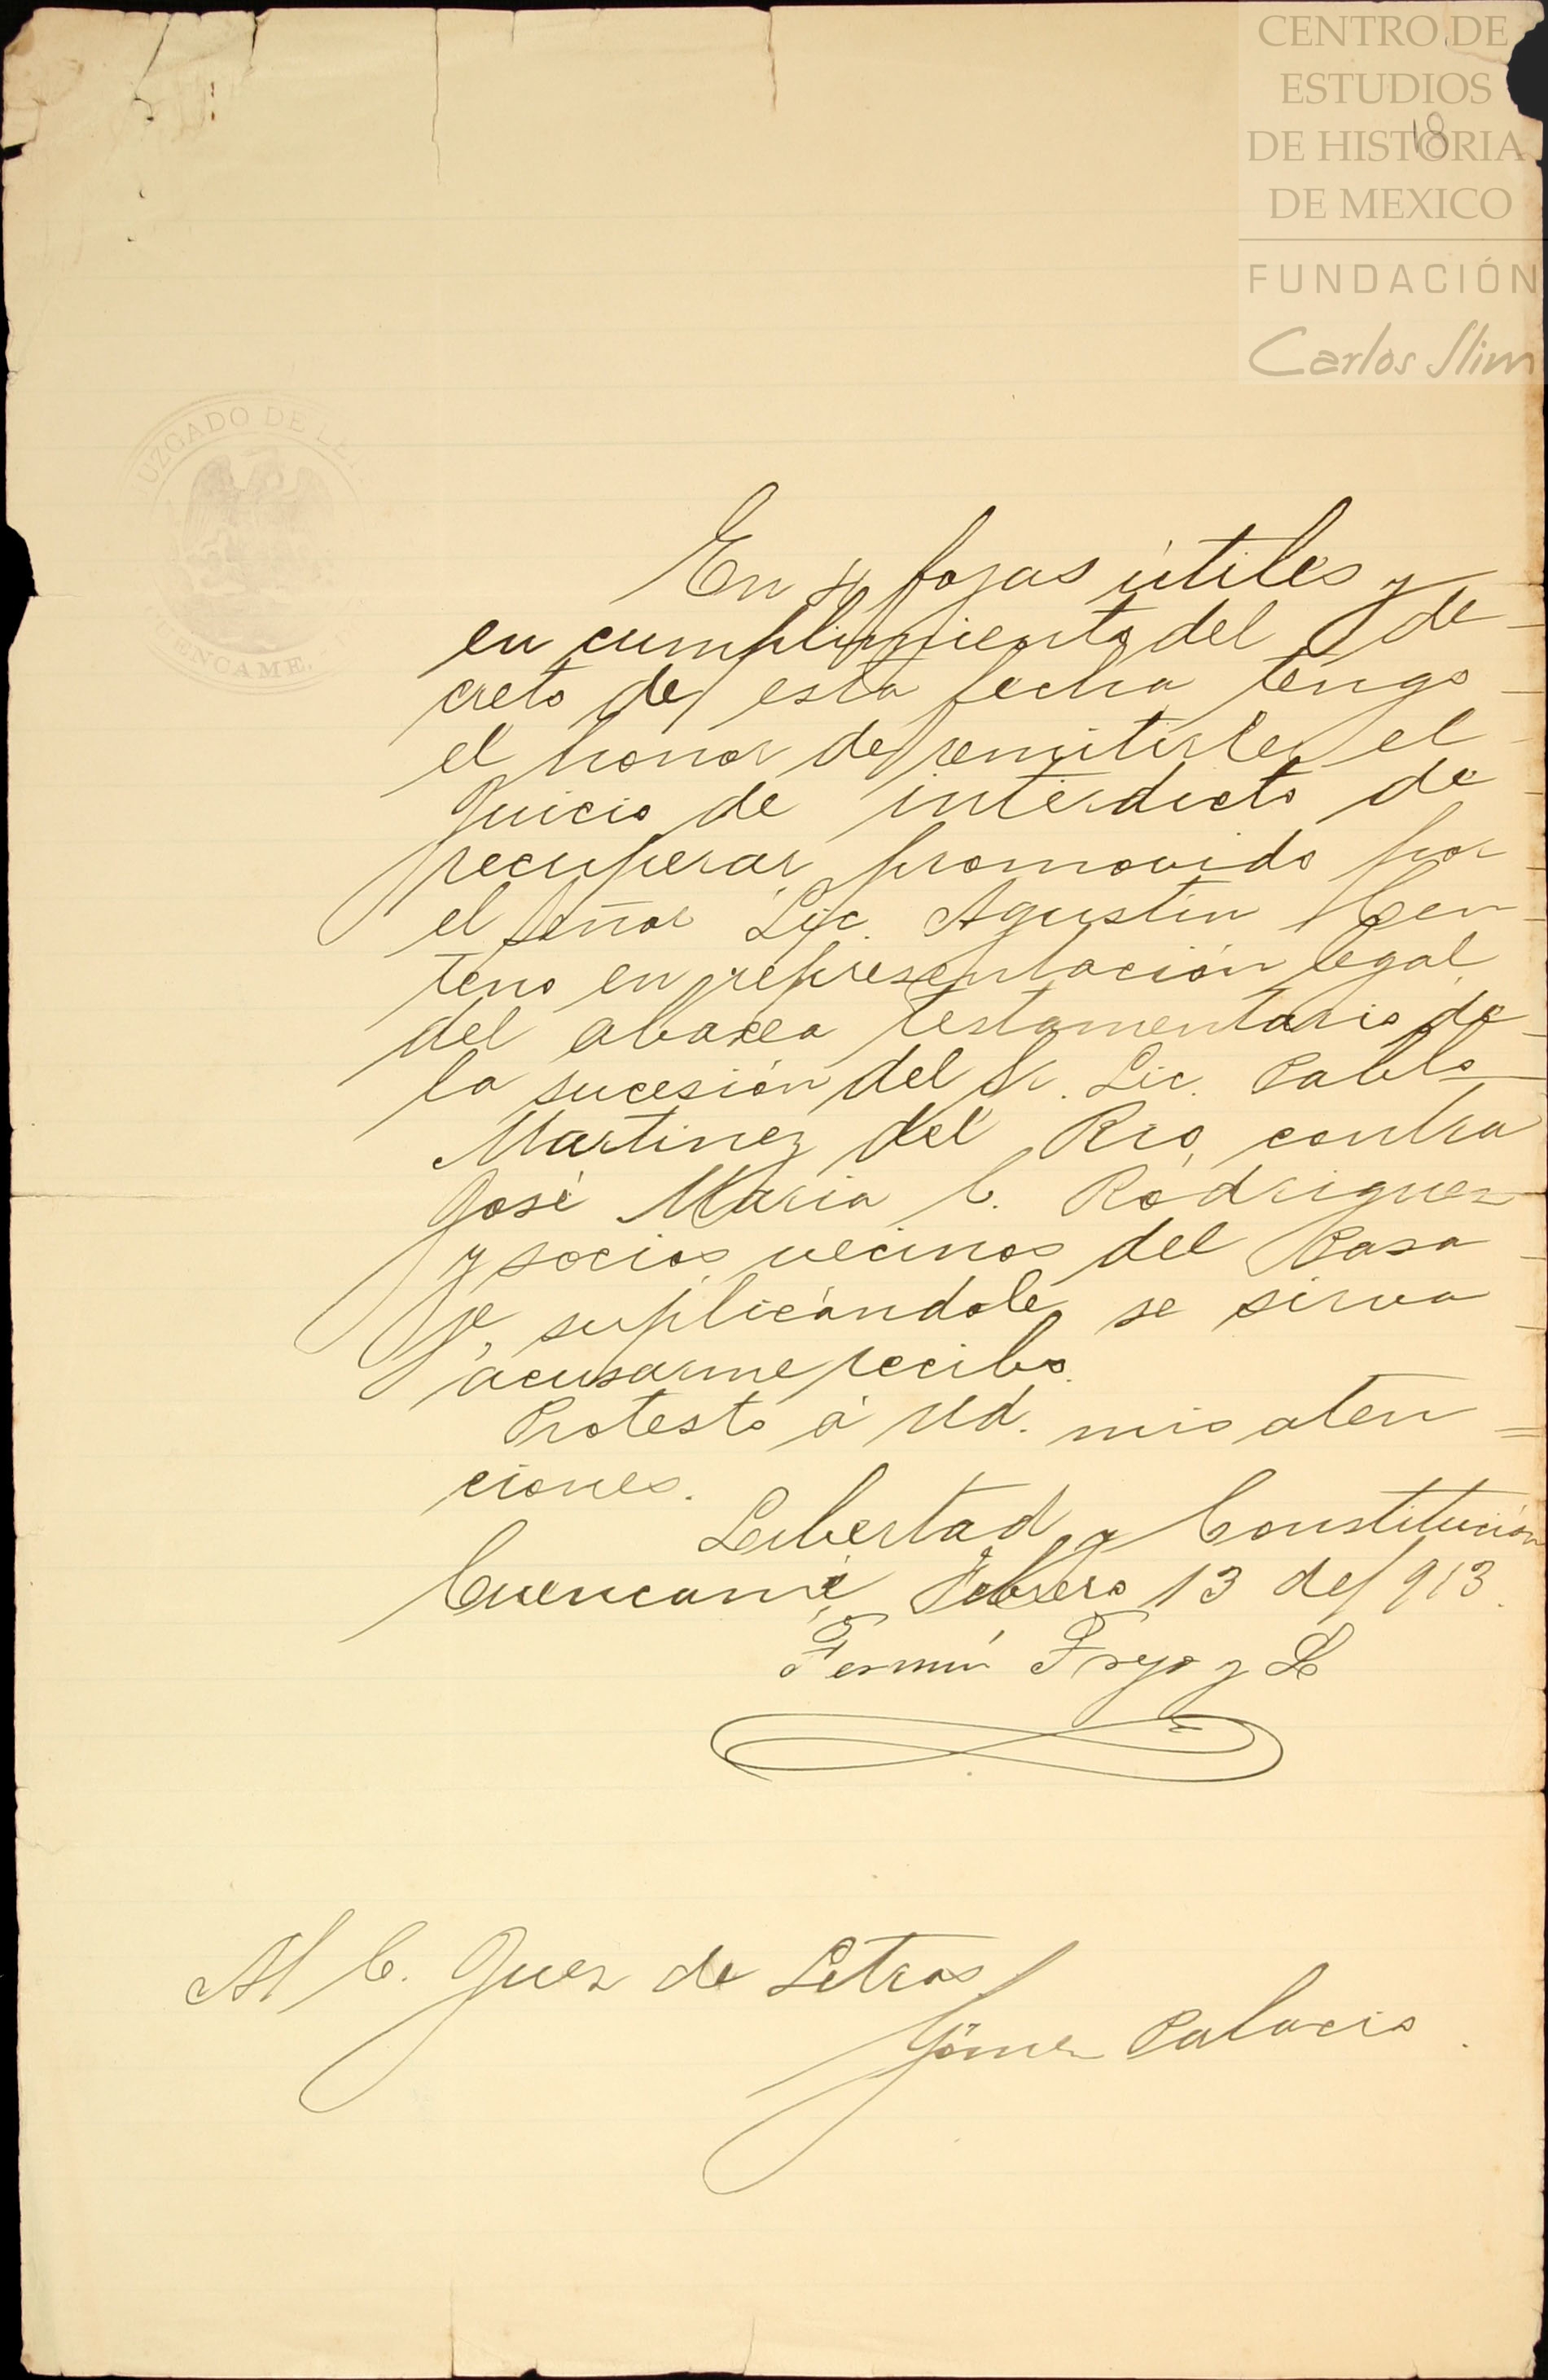 CENTRO DE
ESTUDIOS
DE HISTORIA
DE MEXICO
FUNDACIÓN
Carlos Slim
18
JUZGADO DE LE
ENCAME.
En fojas útiles y
en cumplimiento del de-
creto de esta fecha tengo
el honor de remitirle el
juicio de interdicto de
recuperar promovido por
el Señor Lic. Agustin Cen-
teno en representación legal
del albacea testamentario de
la sucesión del Sr. Lic. Pablo
Martinez del Rio, contra
José Maria C. Rodriguez
y socios vecinos del Pasa-
je, suplicándole se sirva
acusarme recibo.
Protesto á Ud. mis aten=
ciones.
Libertad y Constitución
Cuencamé, Febrero 13 de 913.
Fermín
Al C. Juez de Letras
Gómez Palacio.